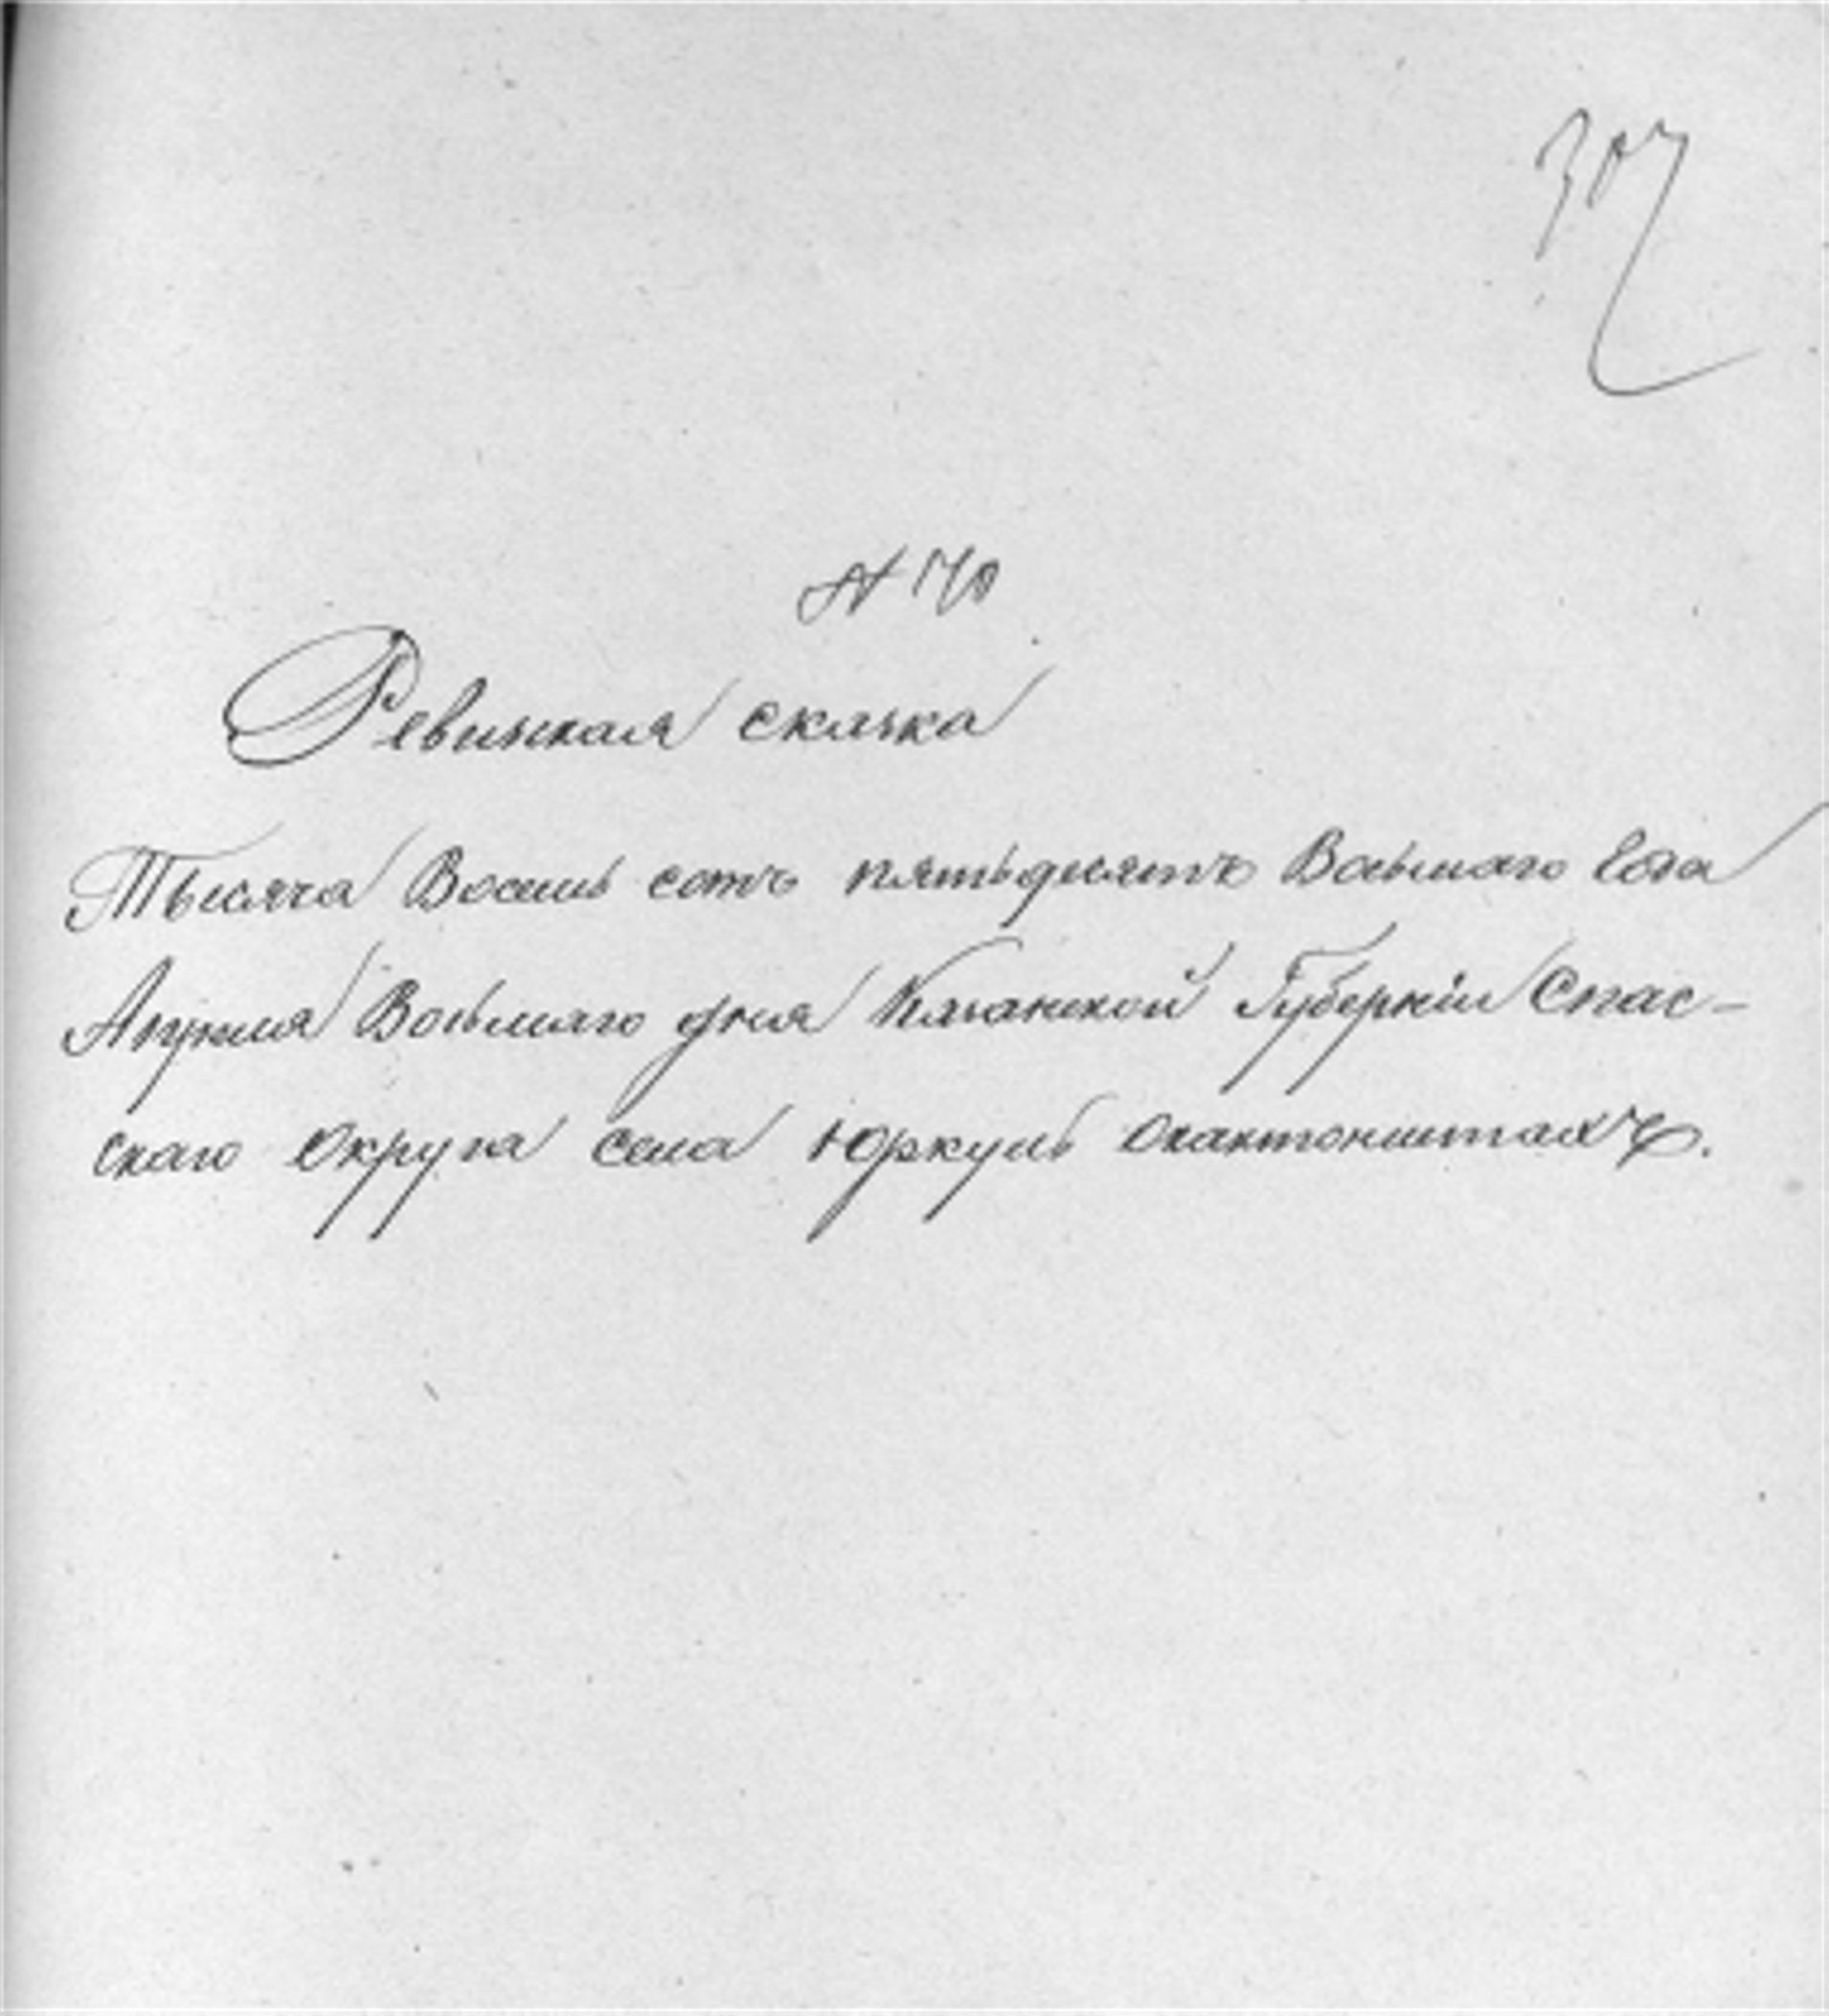 307
№ 70
Ревижская скаска
Тысяча Восемь сотъ пятьдесятъ Восьмаго Года
Апреля Восьмаго дня Казанской Губерніи Спас-
скаго Округа села Юркуль окантонистахъ.